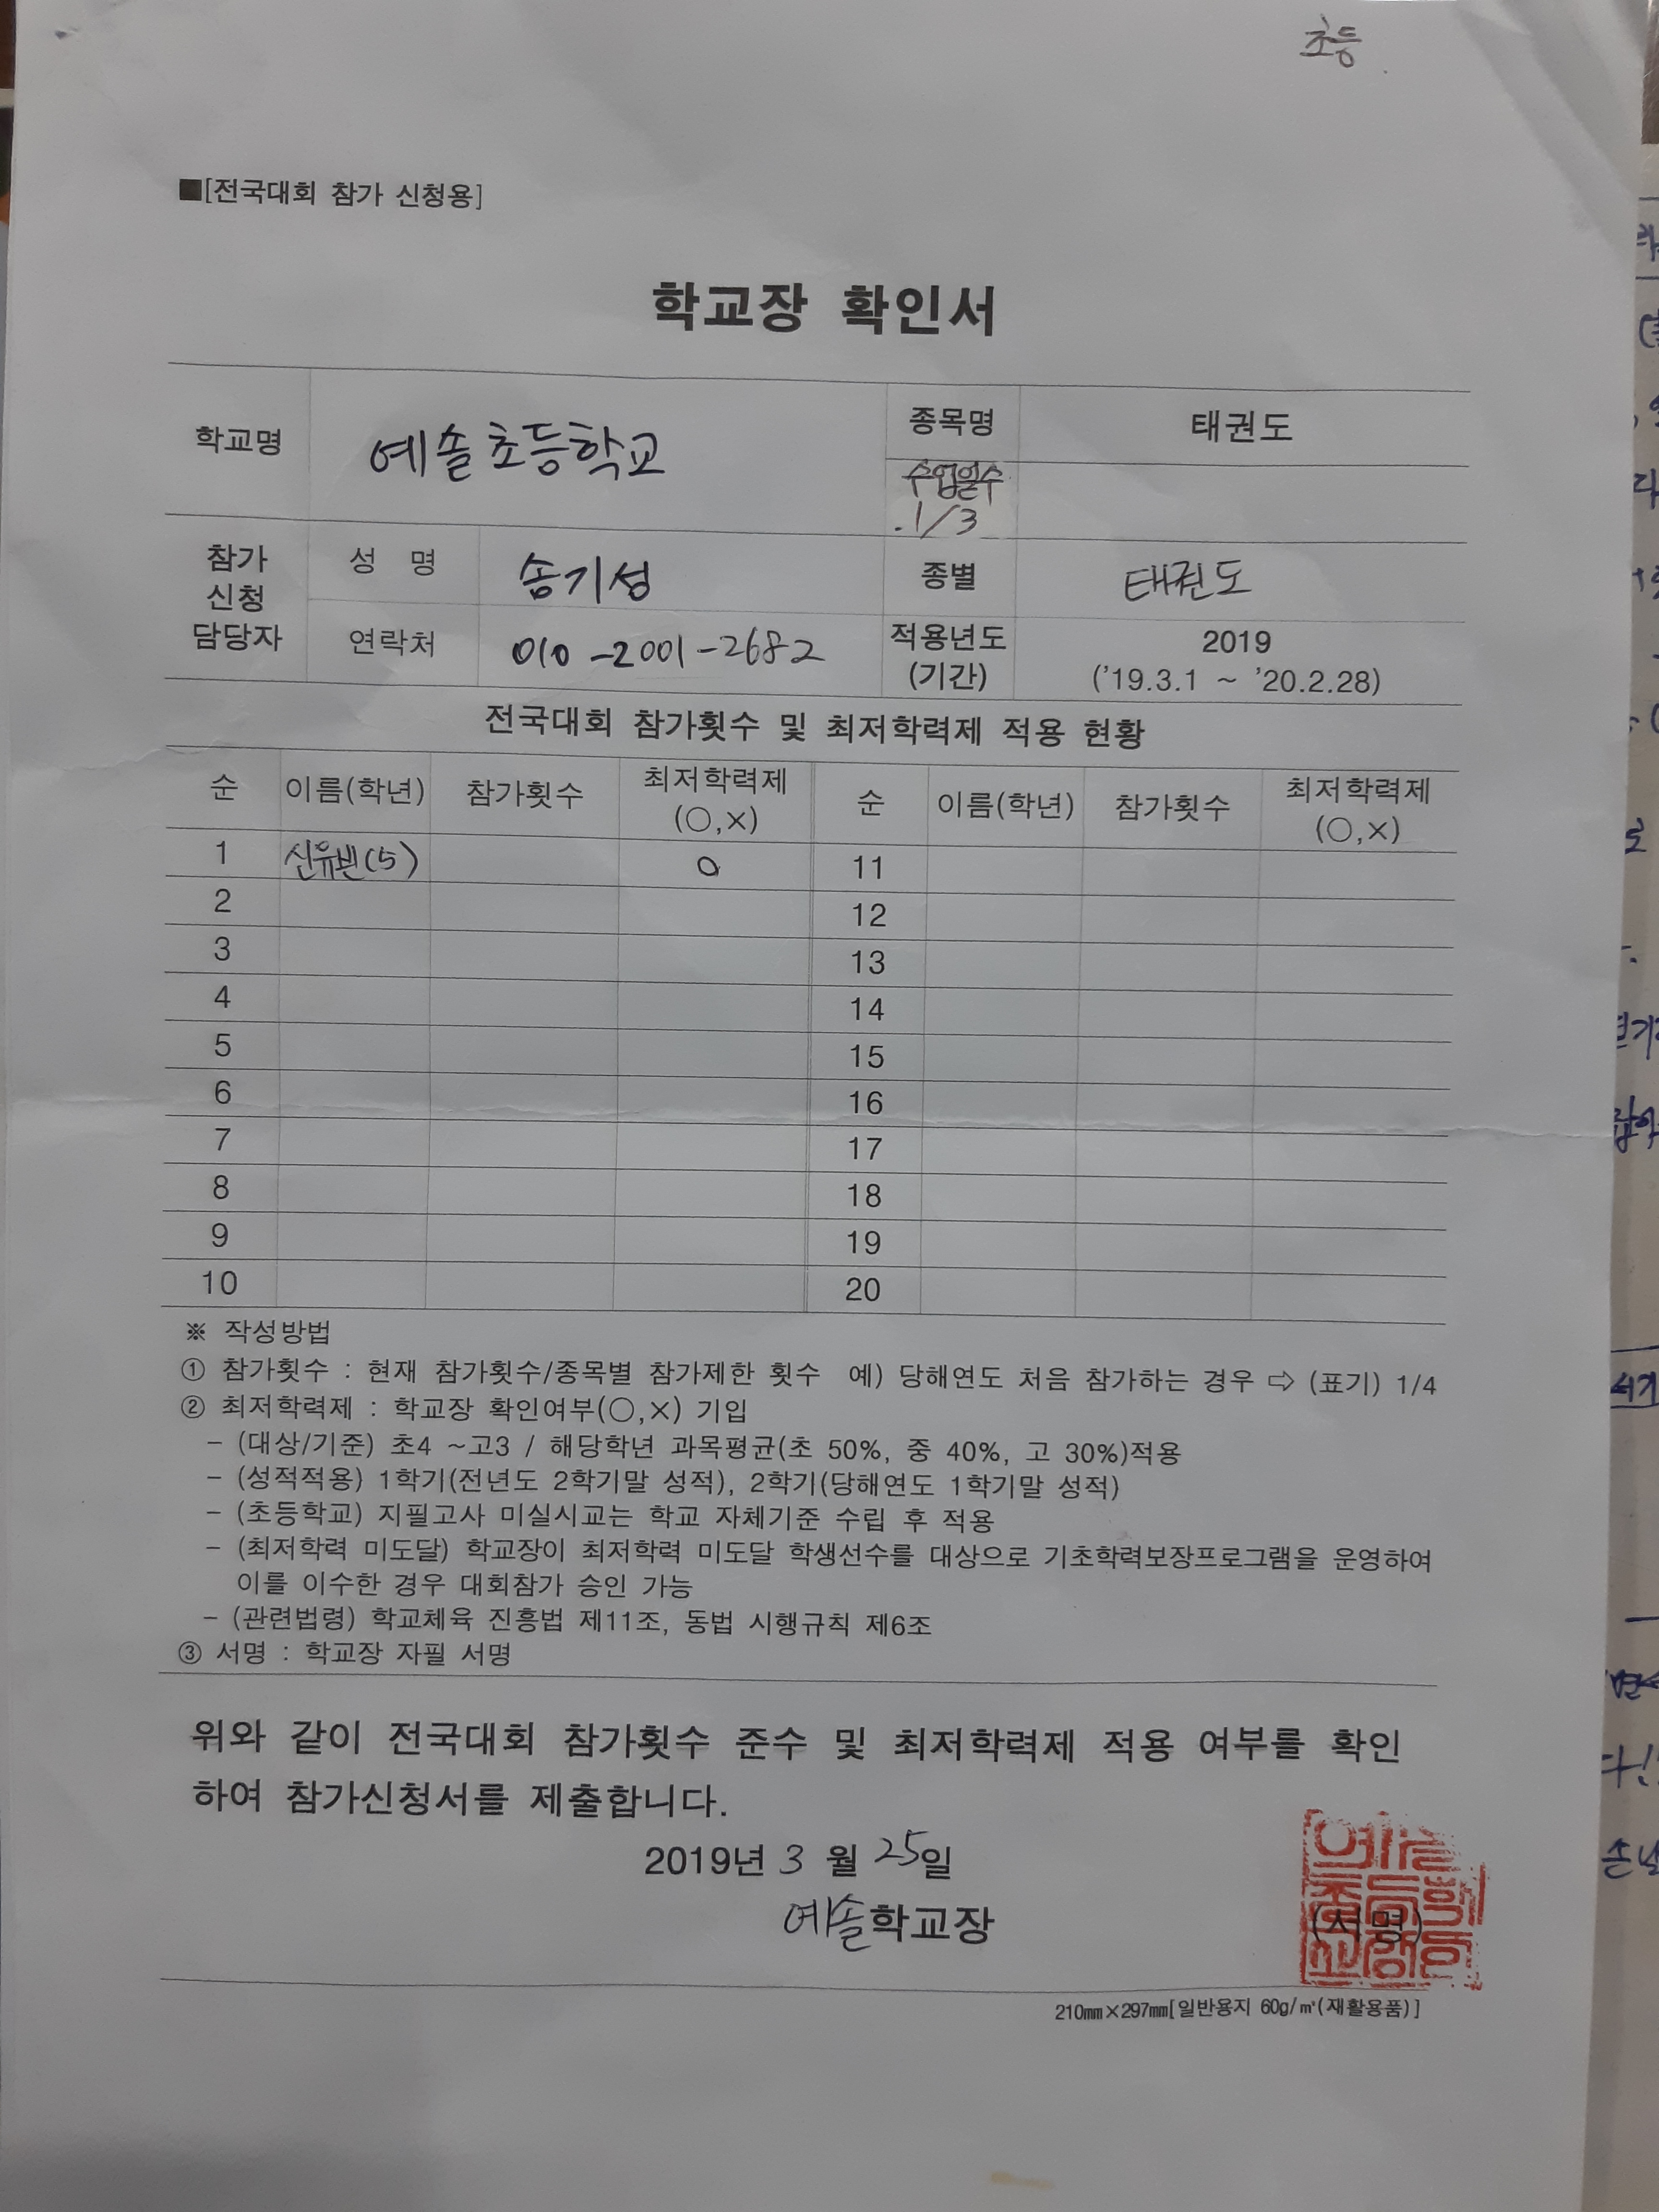 초등
■[전국대회 참가 신청용]
학교장 확인서
학교명 예솔초등학교 종목명 태권도
수업일수
1/3
참가
신청
담당자
성 명 송기성 종별 태권도
연락처 010-2001-2682 적용년도
(기간)
2019
('19.3.1 ~ '20.2.28)
전국대회 참가횟수 및 최저학력제 적용 현황
순 이름(학년) 참가횟수 최저학력제
(○,×)
순 이름(학년) 참가횟수 최저학력제
(○,×)
1 신유빈(5) ○ 11
2 12
3 13
4 14
5 15
6 16
7 17
8 18
9 19
10 20
※ 작성방법
① 참가횟수 : 현재 참가횟수/종목별 참가제한 횟수 예) 당해연도 처음 참가하는 경우 ⇨ (표기) 1/4
② 최저학력제 : 학교장 확인여부(○,×) 기입
- (대상/기준) 초4 ~고3 / 해당학년 과목평균(초 50%, 중 40%, 고 30%)적용
- (성적적용) 1학기(전년도 2학기말 성적), 2학기(당해연도 1학기말 성적)
- (초등학교) 지필고사 미실시교는 학교 자체기준 수립 후 적용
- (최저학력 미도달) 학교장이 최저학력 미도달 학생선수를 대상으로 기초학력보장프로그램을 운영하여
이를 이수한 경우 대회참가 승인 가능
- (관련법령) 학교체육 진흥법 제11조, 동법 시행규칙 제6조
③ 서명 : 학교장 자필 서명
위와 같이 전국대회 참가횟수 준수 및 최저학력제 적용 여부를 확인
하여 참가신청서를 제출합니다.
2019년 3 월 25일
예솔학교장 (서명)
210㎜×297㎜[일반용지 60g/㎡(재활용품)]